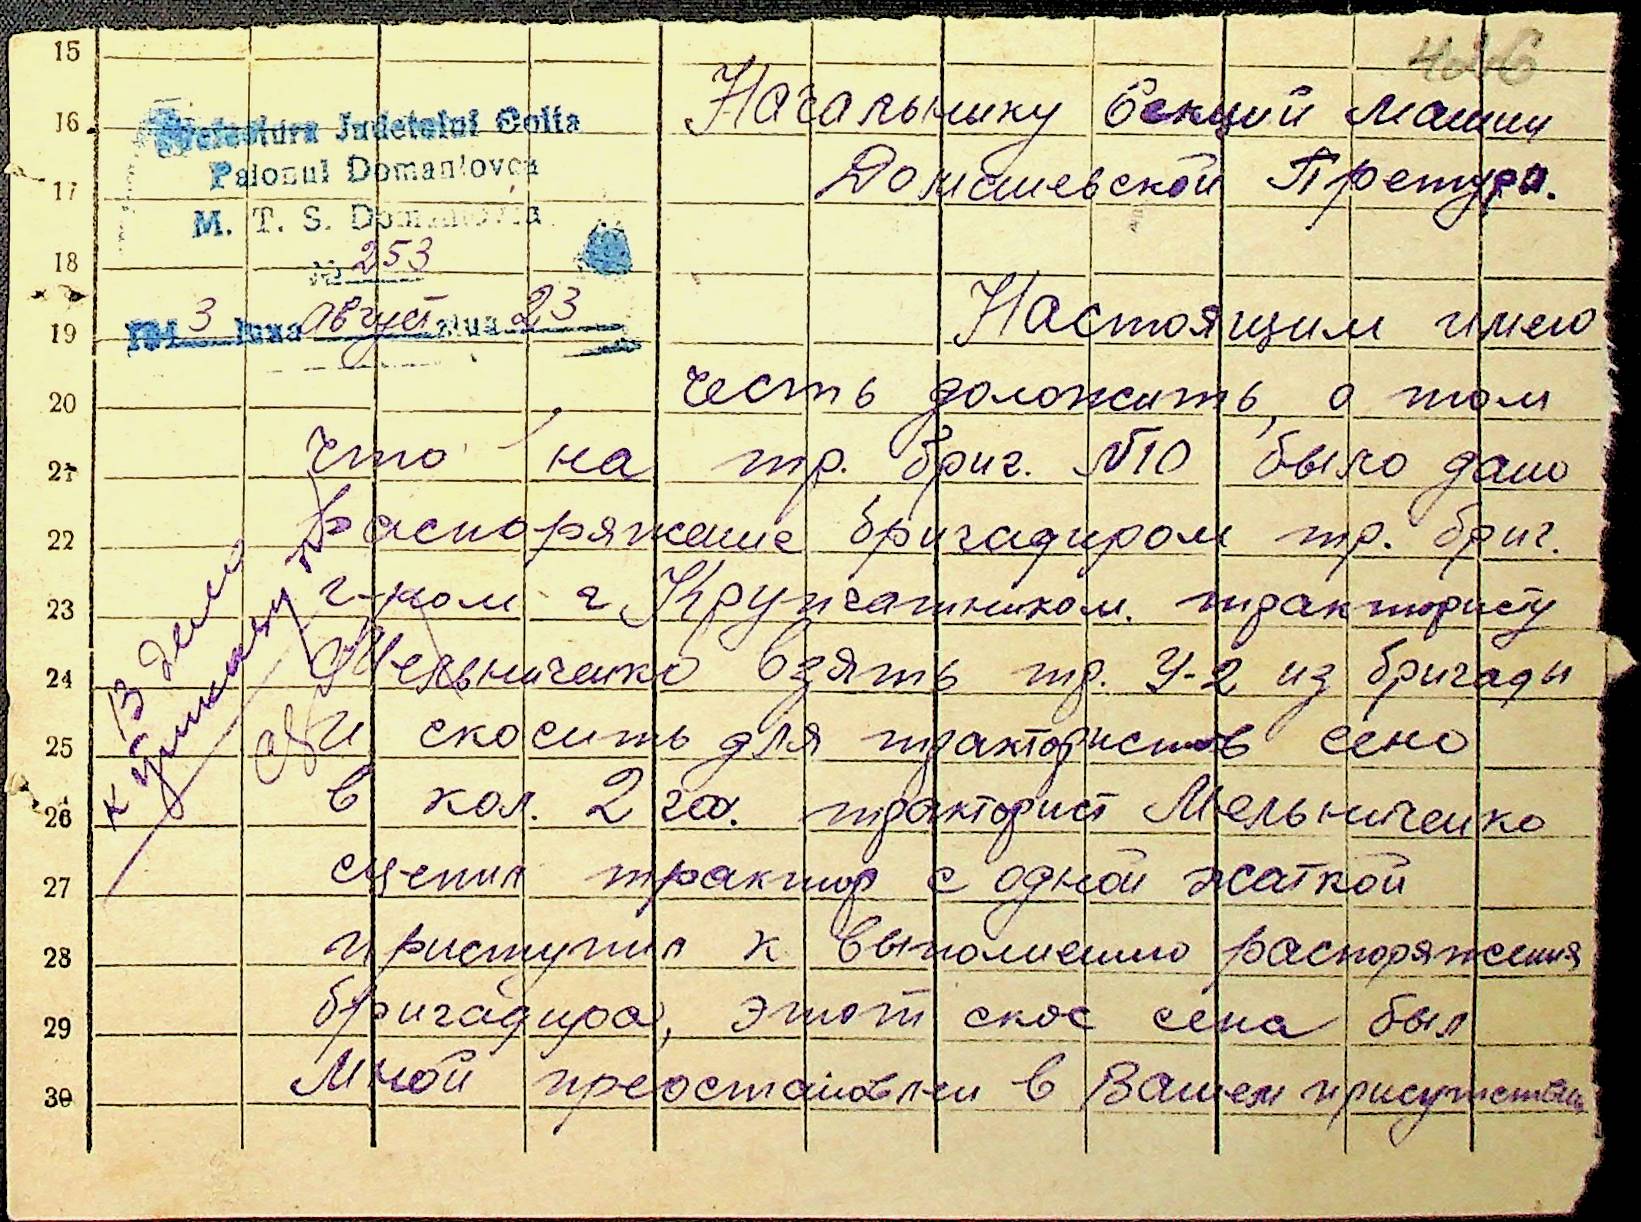 15
16
17
18
19
20
21
22
23
24
25
26
27
28
29
30
Prefectura Judetului Golta
Raionul Domaniovca
M. T. S. Domaniovca
№ 253
1943 luna август ziua 23
Начальнику Секций Машин
Домашевской Претуры.
Настоящим имею
честь доложить, о том
что на тр. бриг. №10 было дано
Распоряжение бригадиром тр. бриг.
г-ном г. Крупчатником. трактористу
Мельниченко взять тр. У-2 из бригады
и скосить для трактористов сено
в кол. 2 га. тракторист Мельниченко
сцепил трактор с одной жаткой
приступил к выполнению распоряжения
бригадира, этот скос сена был
мной преостановлен в Вашем присутствии
В дело
к